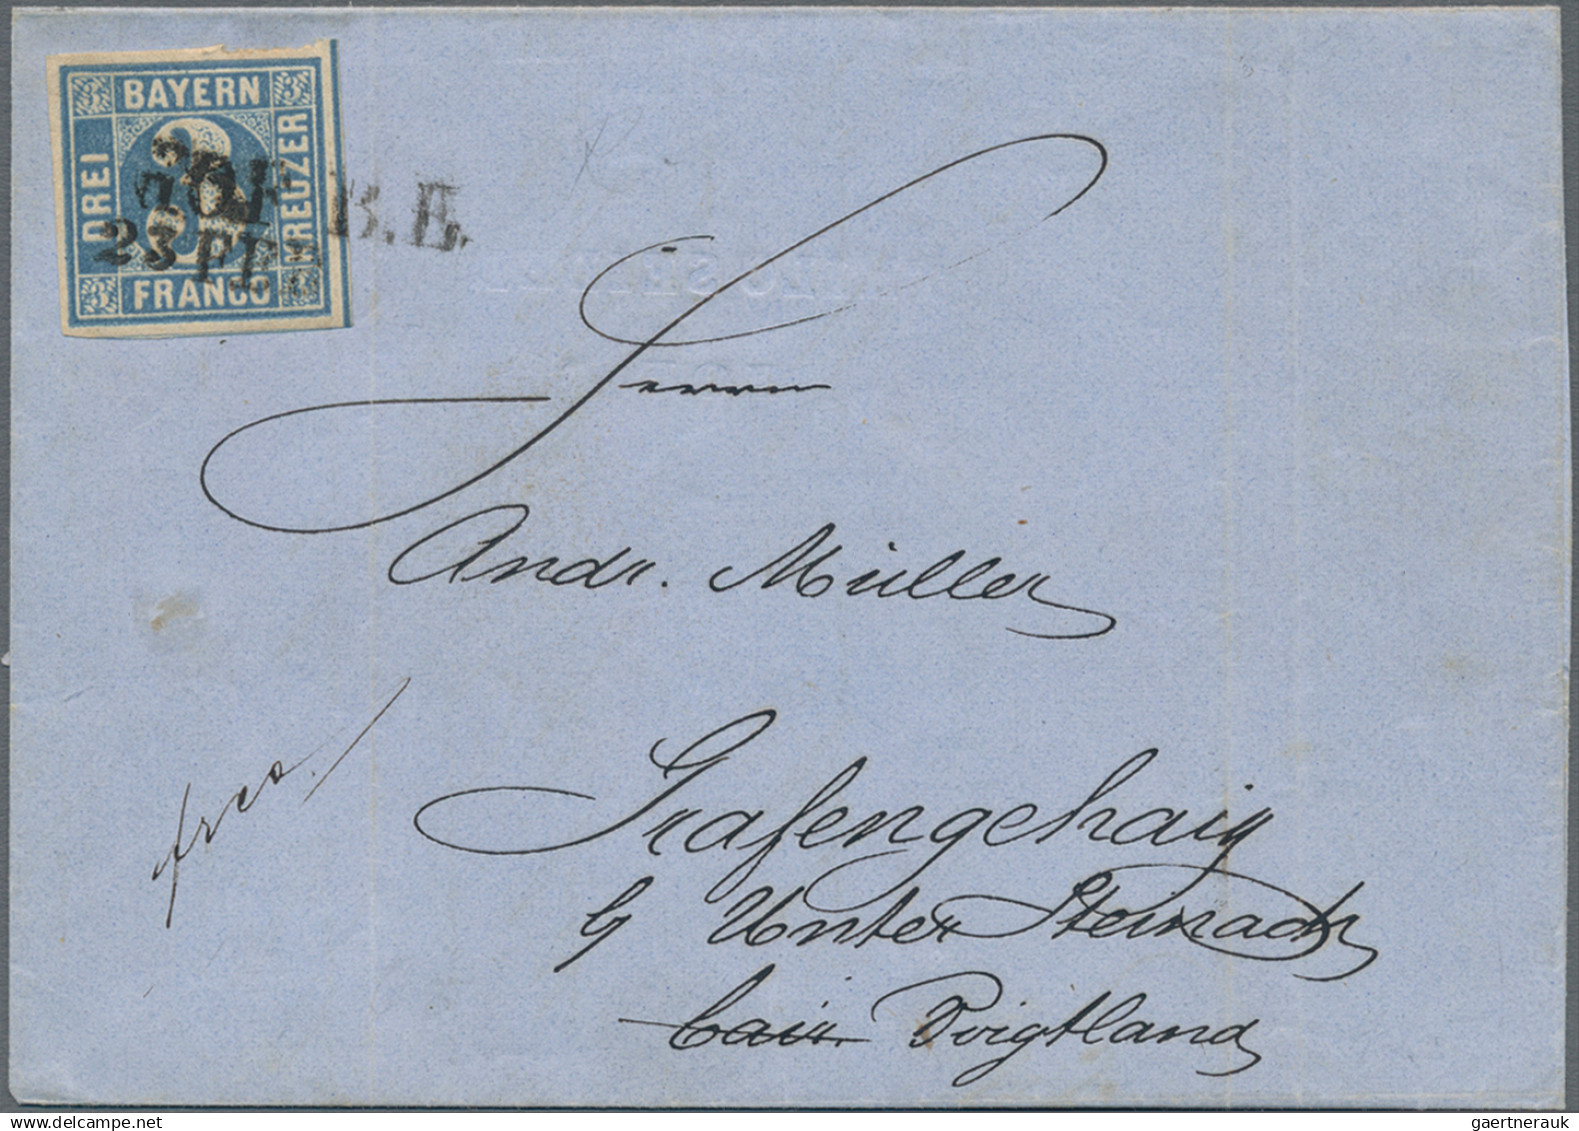 3 BAYERN 3
DREI
KREUZER
3 FRANCO 3
HOF B.E.
23 FEB
Herrn
Andr. Müller
frco.
Grafengehaig
b/ Unter Steinach
bair. Voigtland
gaertnerauk